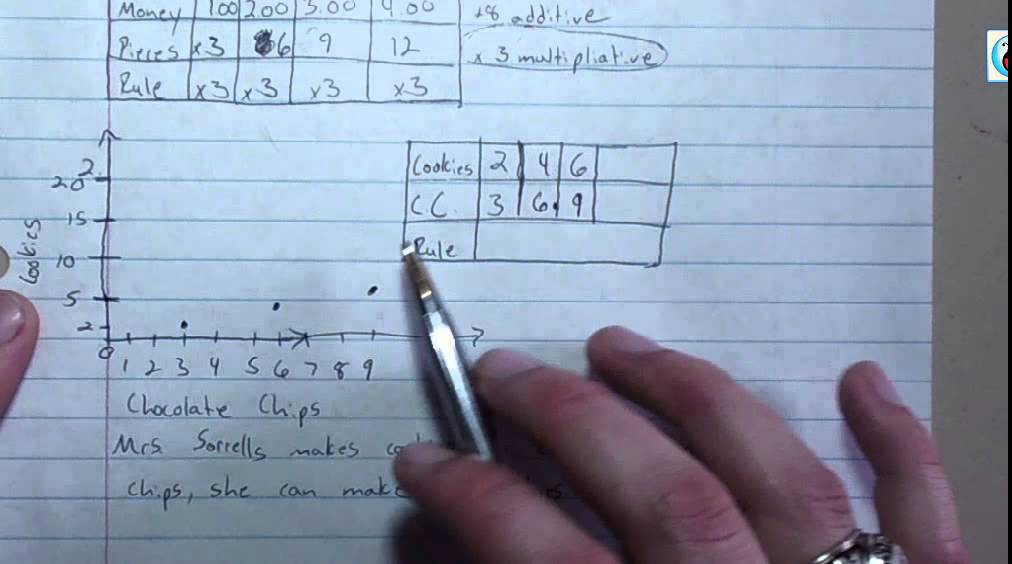 Money 1.00 2.00 3.00 4.00 +8 additive
Pieces x3 6 9 12 x 3 multipliative
Rule x3 x3 x3 x3
Cookies 2 4 6
C.C. 3 6 9
Rule
20 2
15
10
5
2
0
Cookies
1 2 3 4 5 6 7 8 9
Chocolate Chips
Mrs. Sorrells makes
chips, she can make